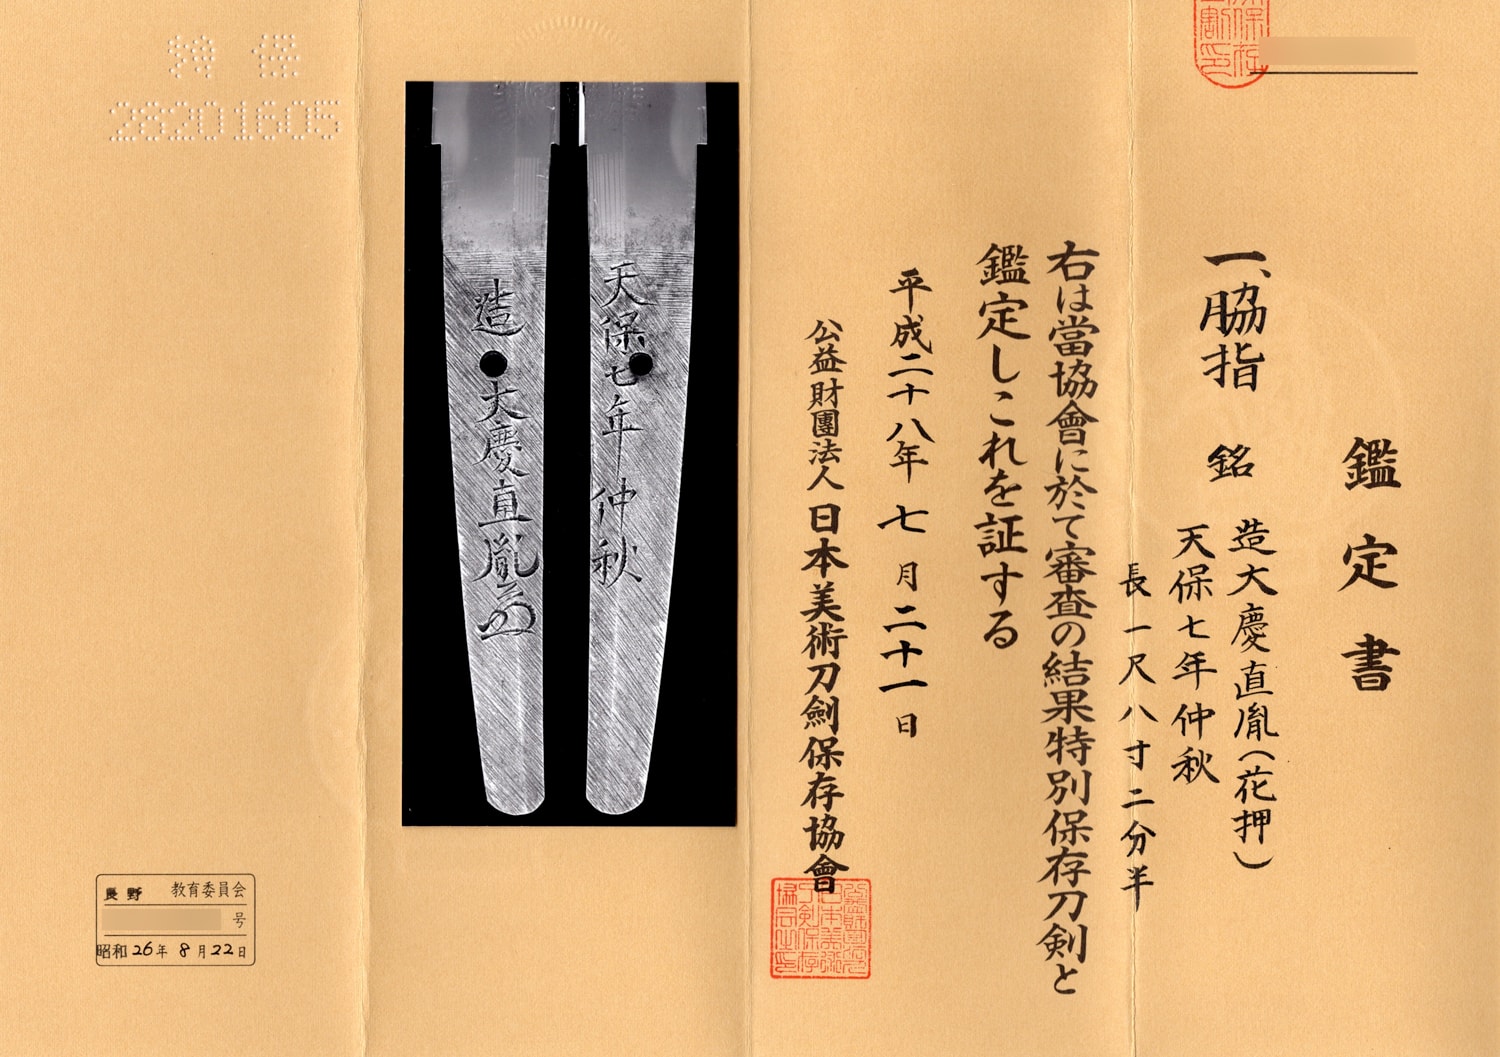 鑑定書
一、脇指 銘 造大慶直胤(花押)
天保七年仲秋
長一尺八寸二分半
右は當協會に於て審査の結果特別保存刀剣と
鑑定しこれを証する
平成二十八年七月二十一日
公益財團法人日本美術刀劍保存協會
天保七年仲秋
造大慶直胤
特保
28201605
長野 教育委員会
号
昭和26年8月22日